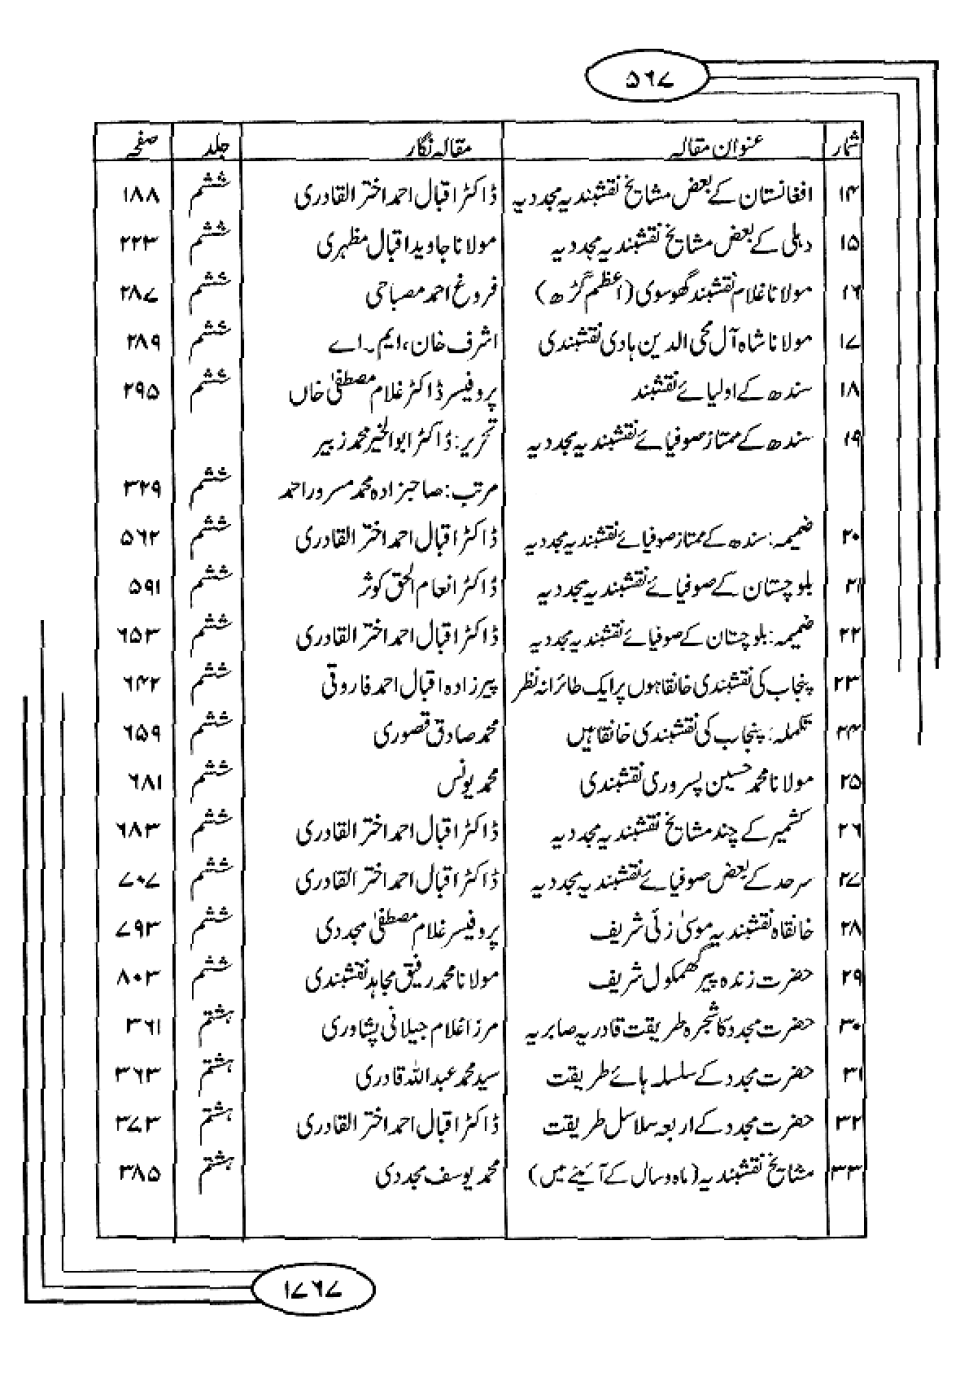 ۵۶۷
شمار عنوان مقالہ مقالہ نگار جلد صفحہ
۱۴ افغانستان کے بعض مشایخ نقشبندیہ مجددیہ ڈاکٹر اقبال احمد اختر القادری ششم ۱۸۸
۱۵ دہلی کے بعض مشایخ نقشبندیہ مجددیہ مولانا جاوید اقبال مظہری ششم ۲۲۳
۱۶ مولانا غلام نقشبند گھوسوی (اعظم گڑھ) فروغ احمد مصباحی ششم ۲۸۷
۱۷ مولانا شاہ آل محی الدین ہادی نقشبندی اشرف خان، ایم۔اے ششم ۲۸۹
۱۸ سندھ کے اولیائے نقشبند پروفیسر ڈاکٹر غلام مصطفیٰ خاں ششم ۲۹۵
۱۹ سندھ کے ممتاز صوفیائے نقشبندیہ مجددیہ تحریر: ڈاکٹر ابوالخیر محمد زبیر
مرتب: صاحبزادہ محمد مسرور احمد ششم ۳۲۹
۲۰ ضمیمہ: سندھ کے ممتاز صوفیائے نقشبندیہ مجددیہ ڈاکٹر اقبال احمد اختر القادری ششم ۵۶۲
۲۱ بلوچستان کے صوفیائے نقشبندیہ مجددیہ ڈاکٹر انعام الحق کوثر ششم ۵۹۱
۲۲ ضمیمہ: بلوچستان کے صوفیائے نقشبندیہ مجددیہ ڈاکٹر اقبال احمد اختر القادری ششم ۶۵۳
۲۳ پنجاب کی نقشبندی خانقاہوں پر ایک طائرانہ نظر پیرزادہ اقبال احمد فاروقی ششم ۶۴۲
۲۴ تکملہ: پنجاب کی نقشبندی خانقاہیں محمد صادق قصوری ششم ۶۵۹
۲۵ مولانا محمد حسین پسروری نقشبندی محمد یونس ششم ۶۸۱
۲۶ کشمیر کے چند مشایخ نقشبندیہ مجددیہ ڈاکٹر اقبال احمد اختر القادری ششم ۶۸۳
۲۷ سرحد کے بعض صوفیائے نقشبندیہ مجددیہ ڈاکٹر اقبال احمد اختر القادری ششم ۷۰۷
۲۸ خانقاہ نقشبندیہ موسیٰ زئی شریف پروفیسر غلام مصطفیٰ مجددی ششم ۷۹۳
۲۹ حضرت زندہ پیر گھمکول شریف مولانا محمد رفیق مجاہد نقشبندی ششم ۸۰۳
۳۰ حضرت مجدد کا شجرہ طریقت قادریہ صابریہ مرزا غلام جیلانی پشاوری ہشتم ۳۶۱
۳۱ حضرت مجدد کے سلسلہ ہائے طریقت سید محمد عبداللہ قادری ہشتم ۳۶۳
۳۲ حضرت مجدد کے اربعہ سلاسل طریقت ڈاکٹر اقبال احمد اختر القادری ہشتم ۳۷۳
۳۳ مشایخ نقشبندیہ (ماہ و سال کے آئینے میں) محمد یوسف مجددی ہشتم ۳۸۵
۱۷۶۷